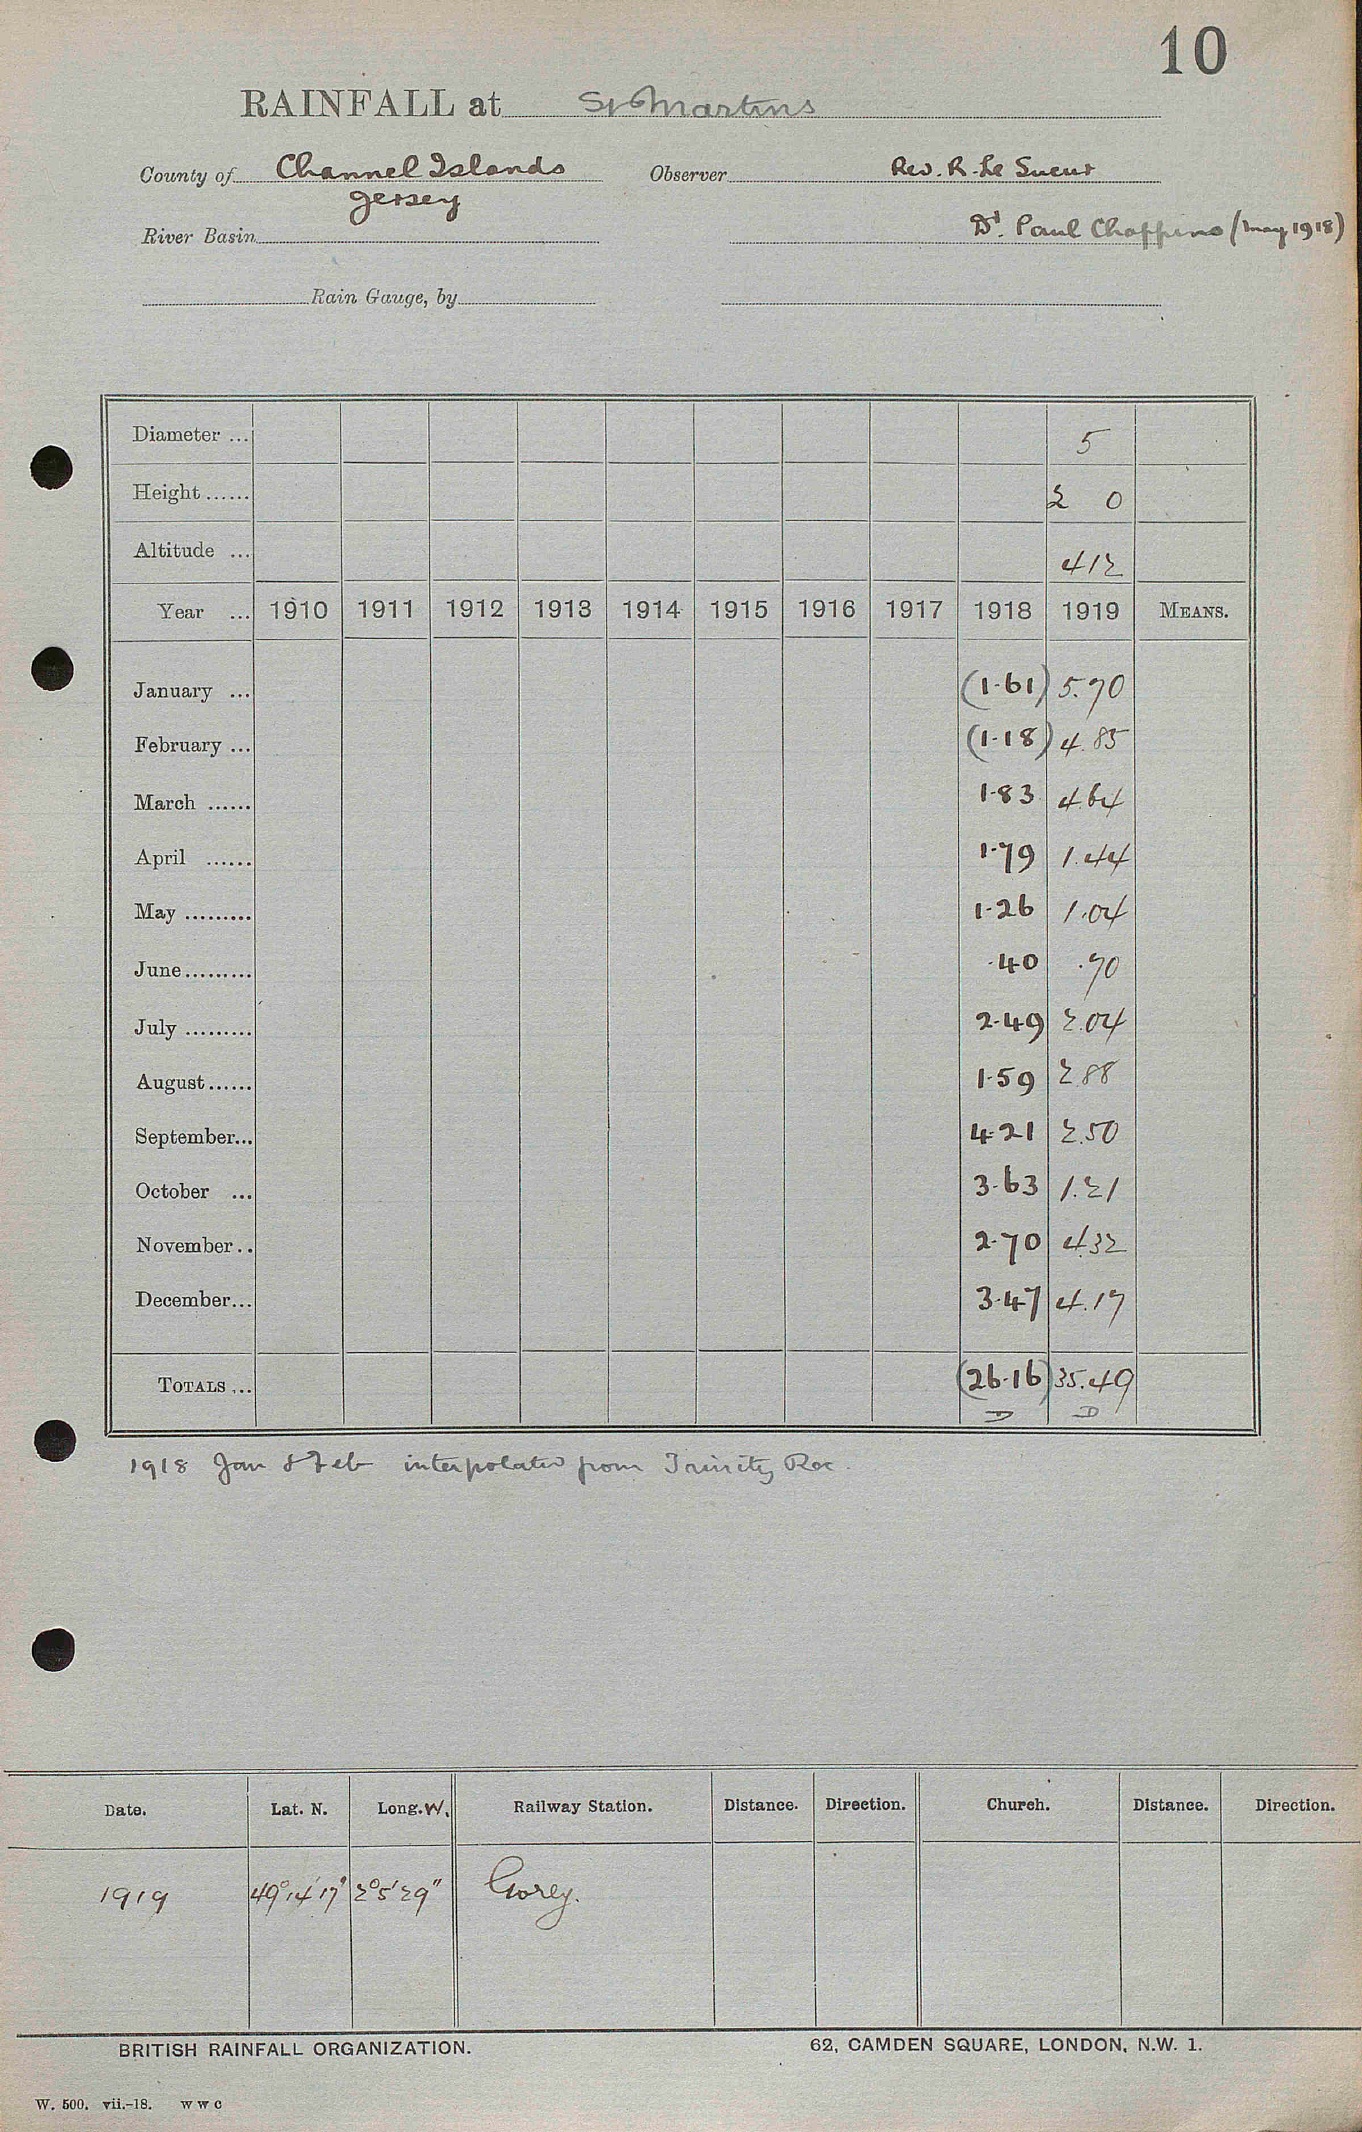 10
RAINFALL at St Martins
County of Channel Islands Observer Rev. R. Le Sueur
Jersey
River Basin Dr. Paul (May 1918)
Rain Gauge, by
Diameter ... 5
Height ...... 2 0
Altitude ... 412
Year ... 1910 1911 1912 1913 1914 1915 1916 1917 1918 1919 MEANS.
January ... (1.61) 5.70
February ... (1.18) 4.85
March ...... 1.83 4.64
April ...... 1.79 1.44
May ......... 1.26 1.04
June......... .40 .70
July ......... 2.49 2.04
August...... 1.59 2.88
September... 4.21 2.50
October ... 3.63 1.21
November.. 2.70 4.32
December... 3.47 4.17
TOTALS ... (26.16) 35.49
D D
1918 Jan & Feb interpolated from Trinity Rec.
Date. Lat. N. Long. W. Railway Station. Distance. Direction. Church. Distance. Direction.
1919 49° 14' 17" 2° 5' 29" Gorey.
BRITISH RAINFALL ORGANIZATION. 62, CAMDEN SQUARE, LONDON, N.W. 1.
W. 500. vii.-18. W W C